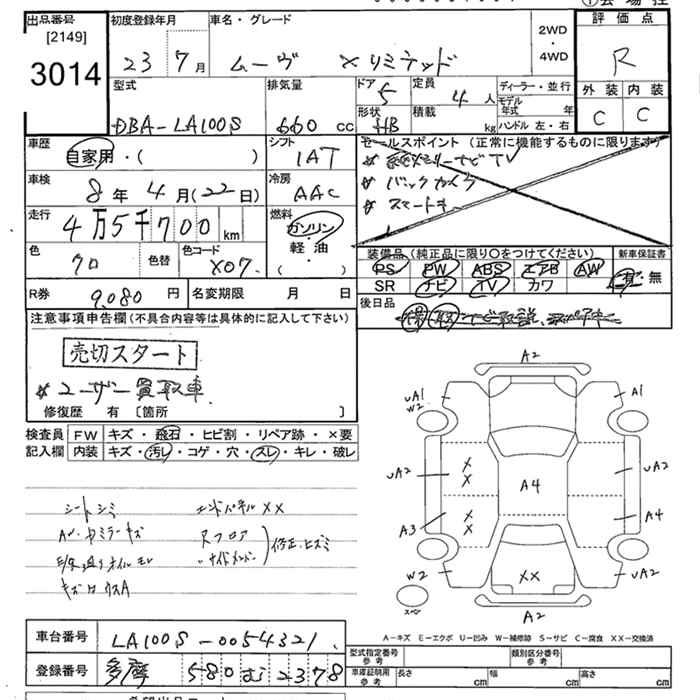 出品番号
[2149]
3014
初度登録年月
23 7月
車名・グレード
ムーヴ Xリミテッド
2WD
・
4WD
評価点
R
外装 内装
C C
型式
DBA-LA100S
排気量
660 cc
ドア
5
形状
HB
定員
4人
積載
kg
ディーラー・並行
モデル年式 年
ハンドル 左・右
車歴
自家用・( )
シフト
IAT
セールスポイント(正常に機能するものに限ります)
ナビTV
バックカメラ
スマートキー
車検
8年4月(22日)
冷房
AAC
走行
4万5千700km
燃料
ガソリン
・
軽油
( )
色
クロ
色替
色コード
X07
装備品(純正品に限り○をつけてください)
新車保証書
PS PW ABS エアB AW
SR ナビ TV カワ
有・無
R券
9,080円
名変期限 月 日
後日品
保 取
注意事項申告欄(不具合内容等は具体的に記入して下さい)
売切スタート
※ユーザー買取車
修復歴 有〔箇所 〕
検査員
記入欄
FW キズ・飛石・ヒビ割・リペア跡・×要
内装 キズ・汚レ・コゲ・穴・スレ・キレ・破レ
シートシミ
エンドパネルXX
AW・ミラーキズ
Rフロア
サイドメンバー
修正・ヒズミ
A2
UA1
W2
A1
UA2
X
X
X
X
A4
UA2
A3
A4
W2
XX
UA2
スペア
A2
A-キズ E-エクボ U-凹み W-補修跡 S-サビ C-腐食 XX-交換済
車台番号
LA100S-0054321
登録番号
多摩 580 む 2378
型式指定番号
参考
類別区分番号
参考
車庫証明用
参考
長さ cm
幅 cm
高さ cm